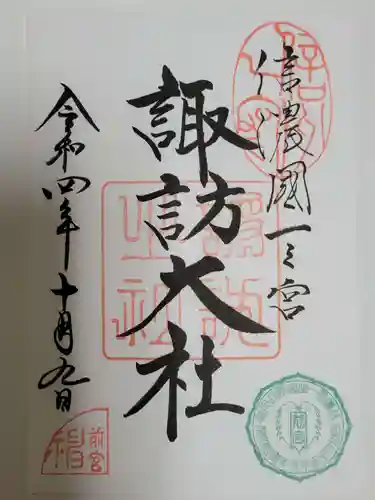 信濃國一之宮
諏訪大社
令和四年十月九日
前宮